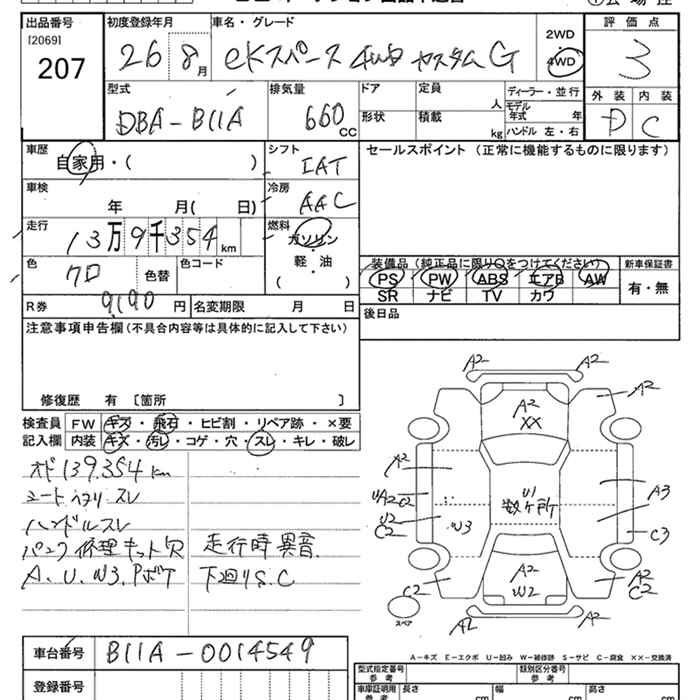 出品番号 初度登録年月 車名・グレード 2WD 評価点
[2069]
207 26 8月 eKスペース 4WD カスタムG 4WD 3
型式 排気量 ドア 定員 人 ディーラー・並行 外装 内装
DBA-B11A 660 CC 形状 積載 kg モデル年式 年 D C
ハンドル 左・右
車歴 シフト セールスポイント (正常に機能するものに限ります)
自家用・( ) IAT
車検 冷房
年 月( 日) AAC
走行 燃料
13万9千354km ガソリン
軽・油
( )
色 クロ 色替 色コード
装備品 (純正品に限り○をつけてください) 新車保証書
PS PW ABS エアB AW 有・無
SR ナビ TV カワ
R券 9190円 名変期限 月 日 後日品
注意事項申告欄 (不具合内容等は具体的に記入して下さい)
修復歴 有 [箇所 ]
検査員 FW キズ・飛石・ヒビ割・リペア跡・×要
記入欄 内装 キズ・汚レ・コゲ・穴・スレ・キレ・破レ
オド139.354km
シートヘタリ・スレ
ハンドルスレ
パンク修理キット欠 走行時異音
A.U.W3.Pボケ 下廻りS.C
A2 A2
A2
A2
XX
A2
UA2C2
U2
C2
W3
U1
数ヶ所
A3
C3
A2
W2
C2
A2
C2
A2
A2
スペア
A-キズ E-エクボ U-凹み W-補修跡 S-サビ C-腐食 XX-交換済
車台番号 B11A-0014549
型式指定番号 参考 類別区分番号 参考
登録番号 車庫証明用 参考 長さ cm 幅 cm 高さ cm